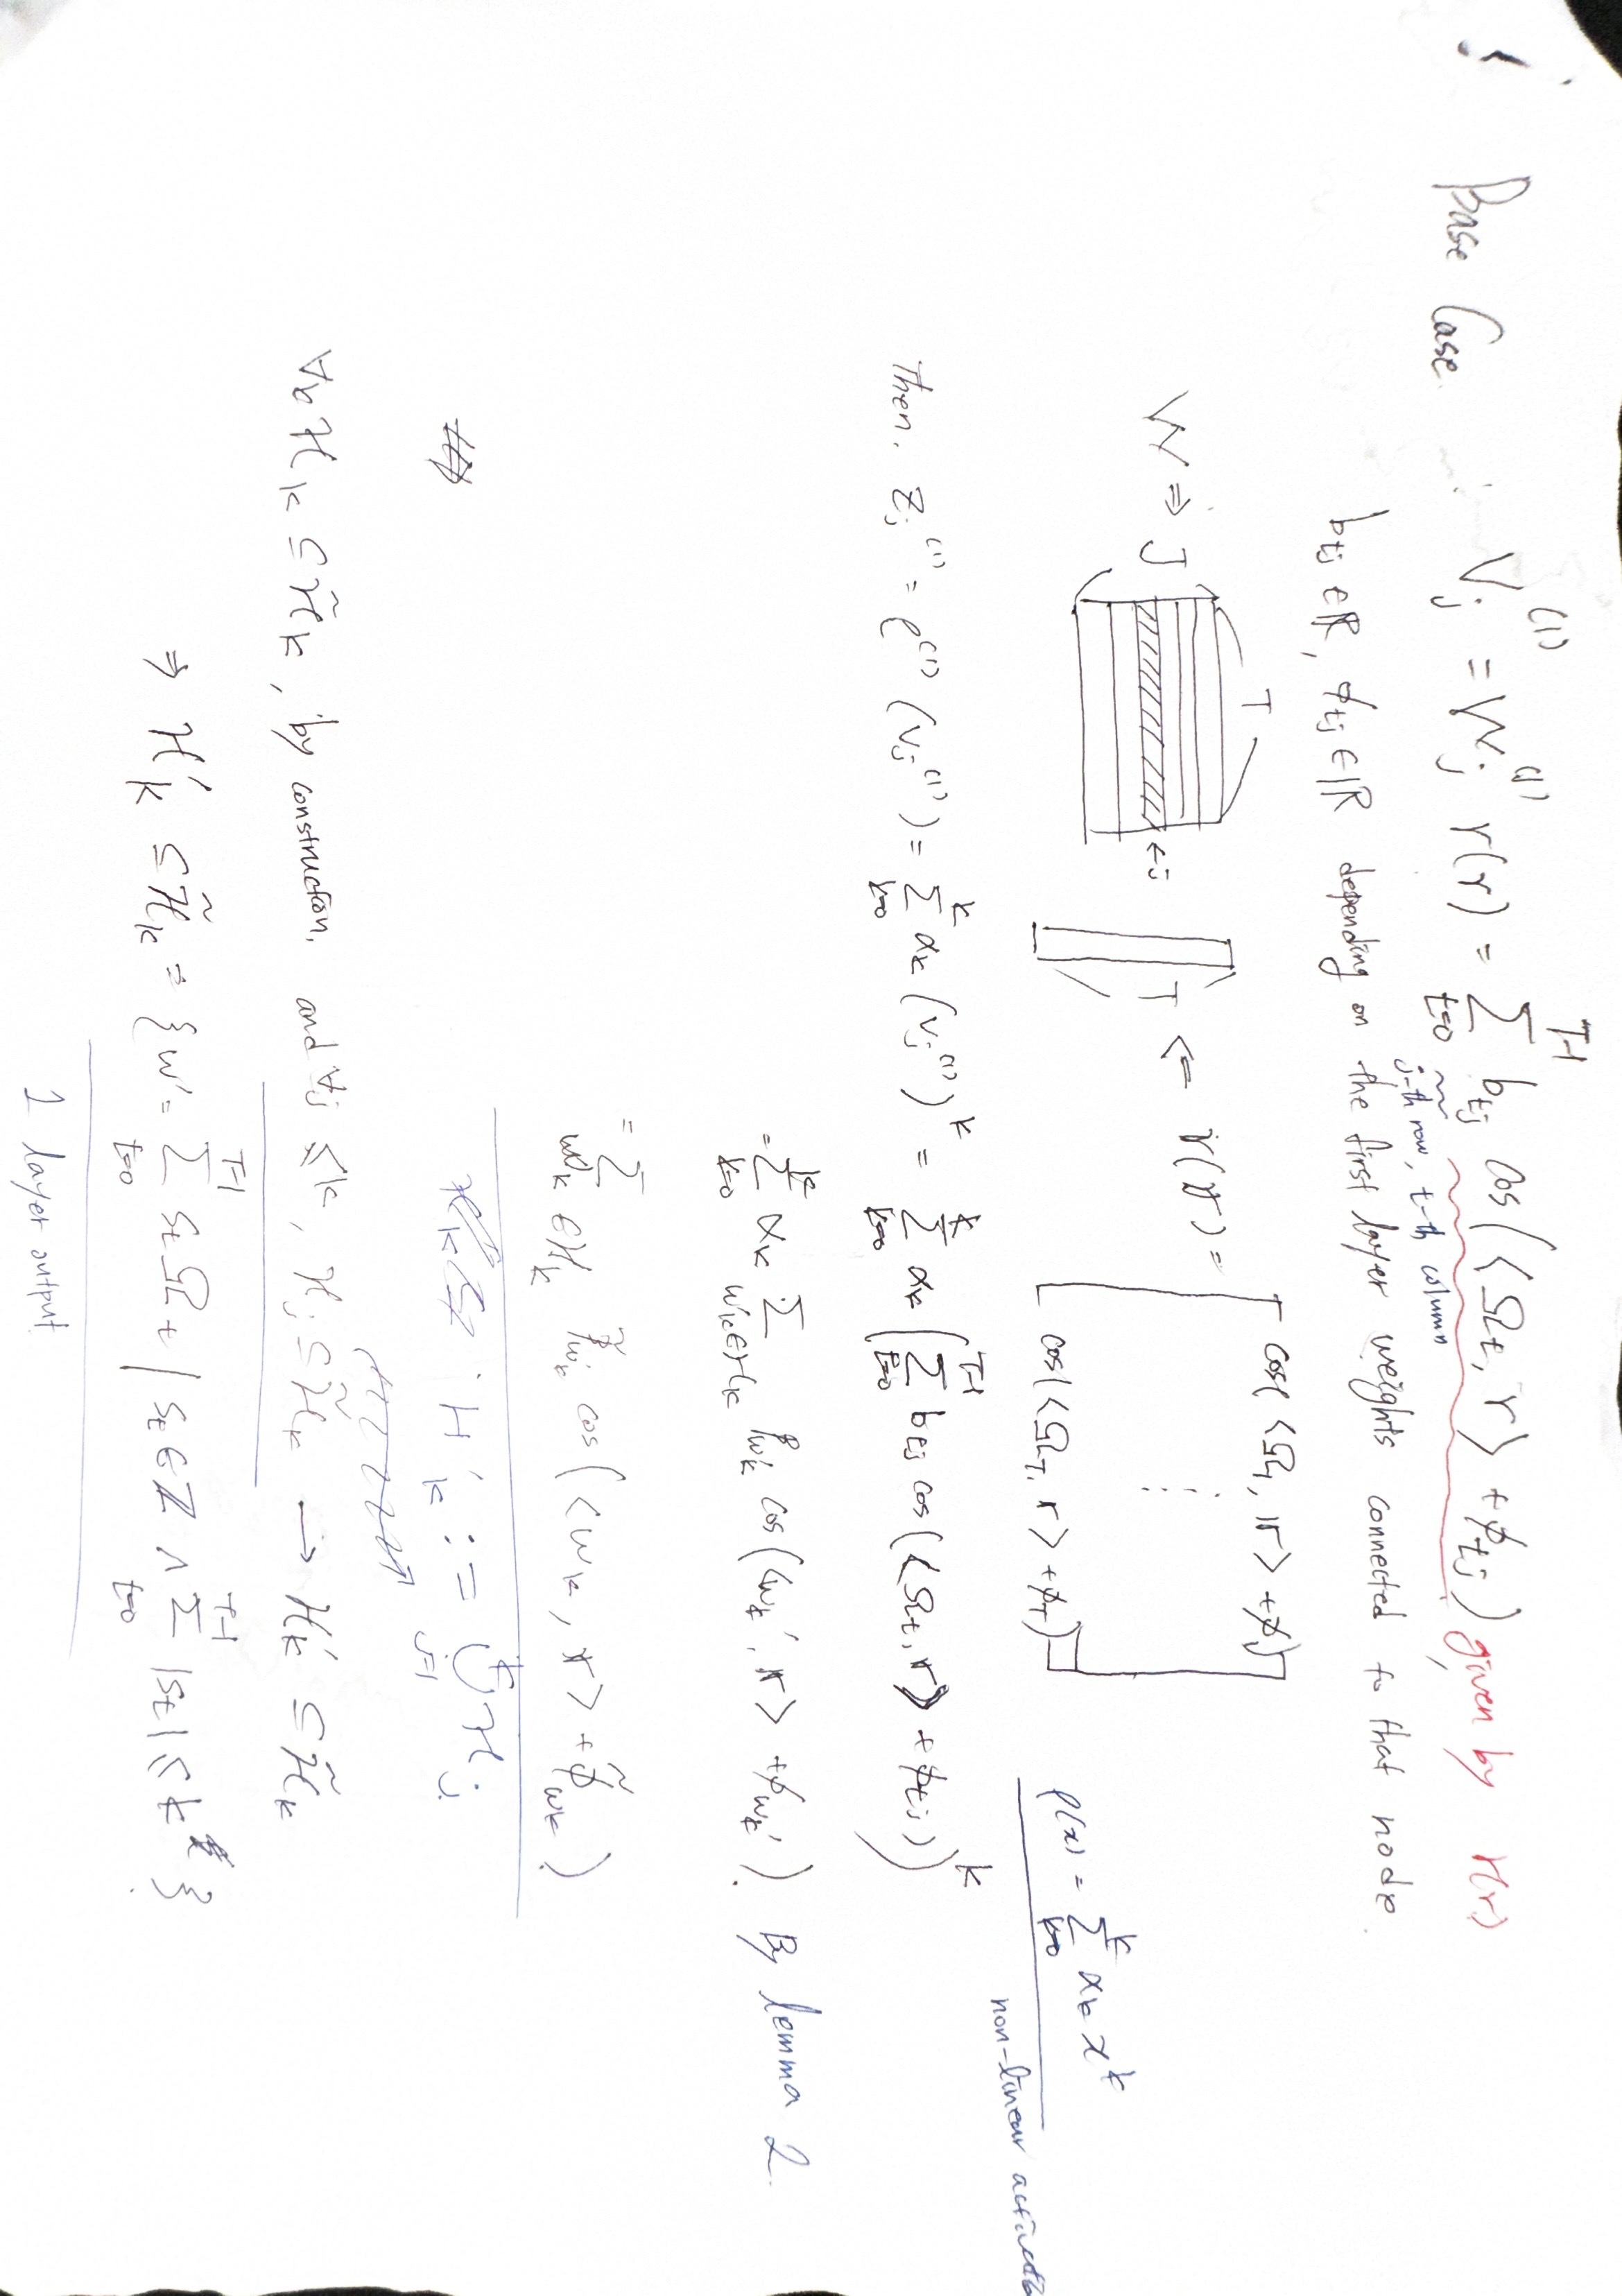 Base Case. V_j^(1) = W_j^(1) γ(r) = Σ_{t=0}^{T-1} b_tj cos(<Ω_t, r> + φ_tj) given by γ(r)
j-th row, t-th column
b_tj ∈ ℝ, φ_tj ∈ ℝ depending on the first layer weights connected to that node.
W ⇒ J T ← j T ← γ(r) = [cos(<Ω_1, r> + φ_1) ⋮ cos(<Ω_T, r> + φ_T)]
ρ(x) = Σ_{k=0}^{K} α_k x^k
non-linear
Then, z_j^(1) = ρ^(1)(V_j^(1)) = Σ_{k=0}^{K} α_k (V_j^(1))^k = Σ_{k=0}^{K} α_k (Σ_{t=0}^{T-1} b_tj cos(<Ω_t, r> + φ_tj))^k
= Σ_{k=0}^{K} α_k Σ_{w'_k ∈ H_k} β_{w'_k} cos(<w'_k, r> + φ_{w'_k}). By lemma 2.
= Σ_{w_k ∈ H'_k} β̃_{w_k} cos(<w_k, r> + φ̃_{w_k})
H'_k := ∪_{j=1}^{K} H_j.
∀k H_k ⊆ H̃_k, by construction, and ∀j ≤ k, H_j ⊆ H̃_k → H'_k ⊆ H̃_k
⇒ H'_k ⊆ H̃_k = {w' = Σ_{t=0}^{T-1} s_t Ω_t | s_t ∈ ℤ ∧ Σ_{t=0}^{T-1} |s_t| ≤ k}.
1 layer output.